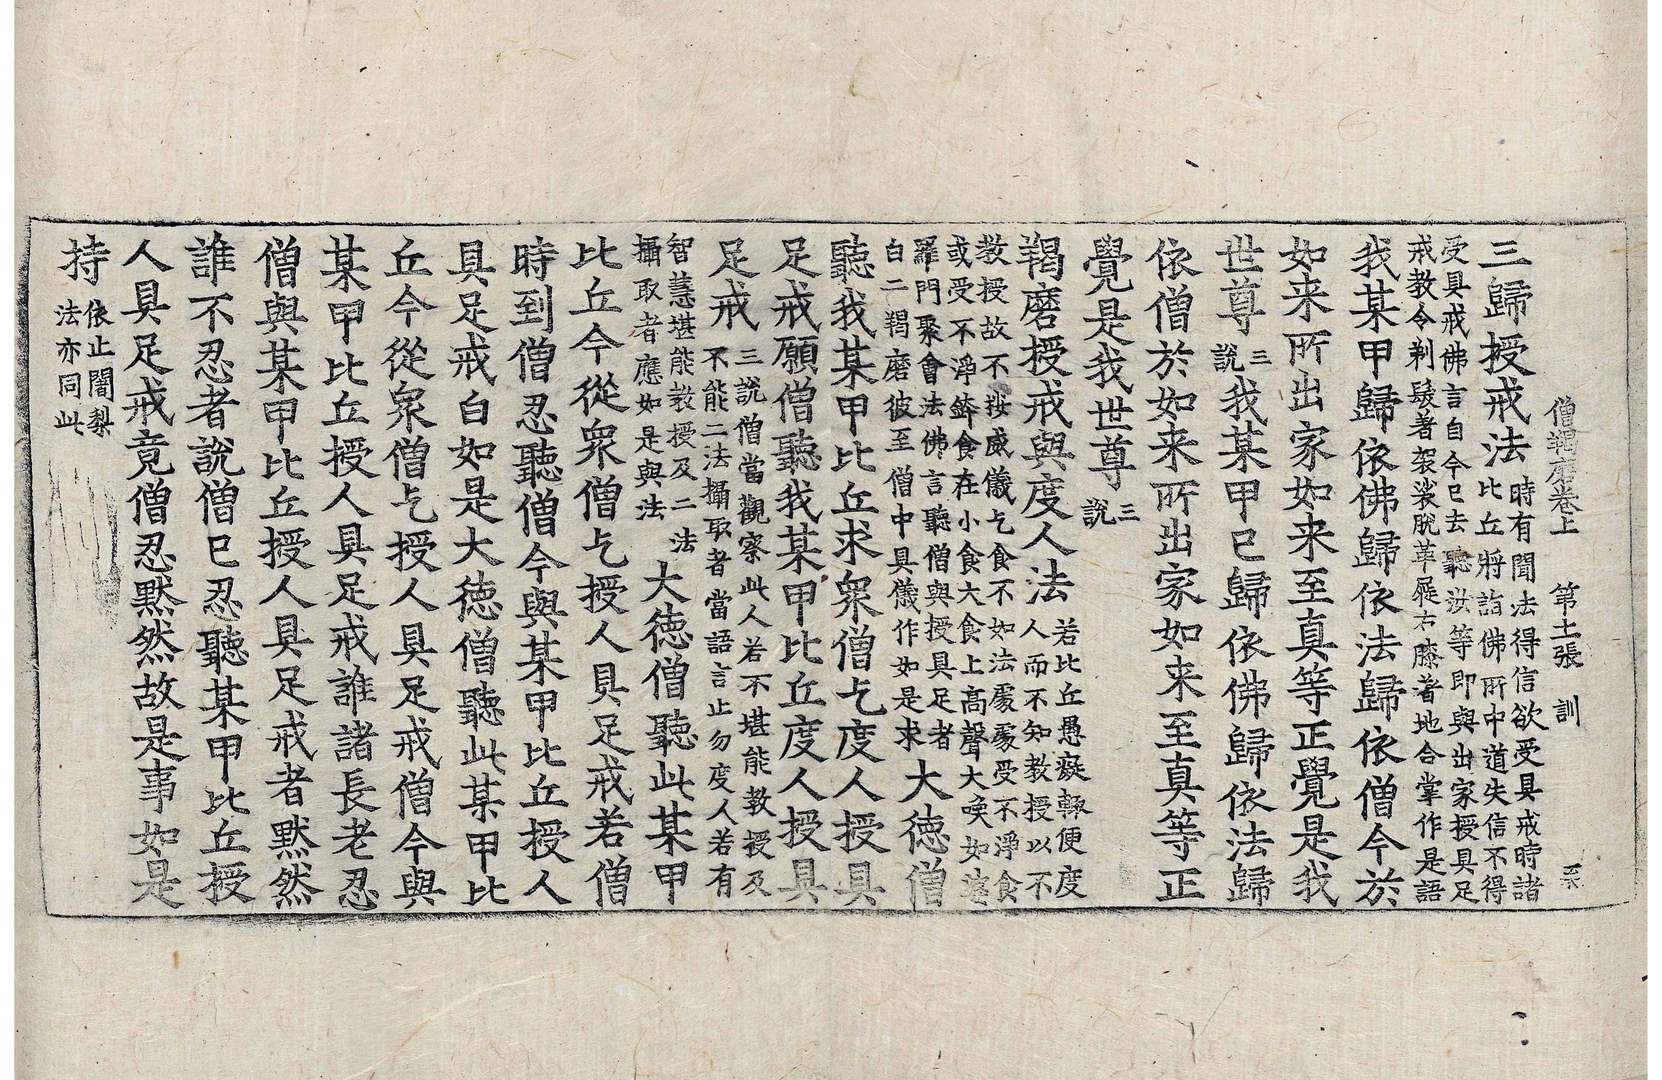 僧羯磨卷上　第十二張　訓
三歸授戒法時有聞法得信欲受具戒時諸比丘將詣佛所中道失信不得
受具戒佛言自今已去聽汝等即與出家授具足戒教令剃髮著袈裟脫革屣右膝著地合掌作是語
我某甲歸依佛歸依法歸依僧今於
如来所出家如来至真等正覺是我
世尊三說我某甲已歸依佛歸依法歸
依僧於如来所出家如来至真等正
覺是我世尊三說
羯磨授戒與度人法若比丘愚癡輙便度人而不知教授以不
教授故不按威儀乞食不如法處處受不淨食或受不淨鉢食在小食大食上高聲大喚如婆
羅門聚會法佛言聽僧與授具足者白二羯磨彼至僧中具儀作如是求大德僧
聽我某甲比丘求衆僧乞度人授具
足戒願僧聽我某甲比丘度人授具
足戒三說僧當觀察此人若不堪能教授及不能二法攝取者當語言止勿度人若有
智慧堪能教授及二法攝取者應如是與法大德僧聽此某甲
比丘今從衆僧乞授人具足戒若僧
時到僧忍聽僧今與某甲比丘授人
具足戒白如是大德僧聽此某甲比
丘今從衆僧乞授人具足戒僧今與
某甲比丘授人具足戒誰諸長老忍
僧與某甲比丘授人具足戒者默然
誰不忍者說僧已忍聽某甲比丘授
人具足戒竟僧忍默然故是事如是
持依止闍梨法亦同此